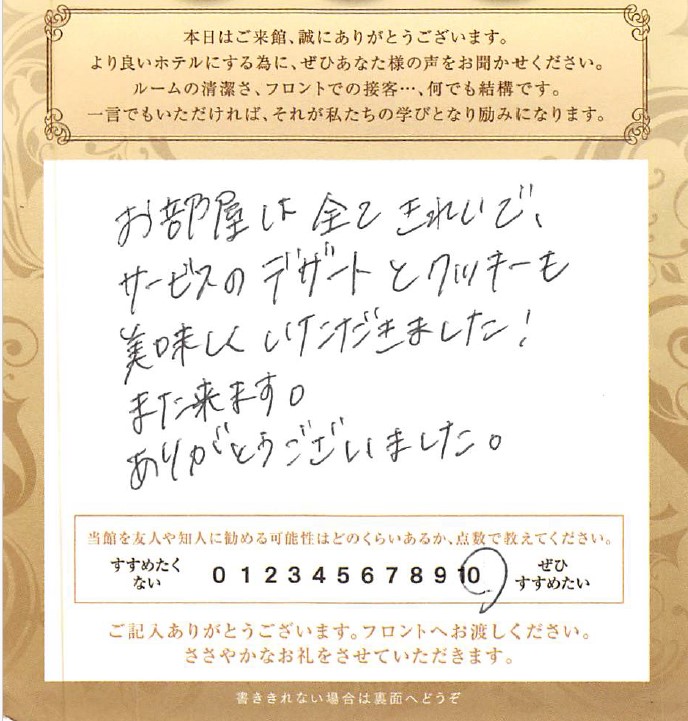 本日はご来館、誠にありがとうございます。
より良いホテルにする為に、ぜひあなた様の声をお聞かせください。
ルームの清潔さ、フロントでの接客…、何でも結構です。
一言でもいただければ、それが私たちの学びとなり励みになります。
お部屋は全てきれいで、
サービスのデザートとクッキーも
美味しくいただきました!
また来ます。
ありがとうございました。
当館を友人や知人に勧める可能性はどのくらいあるか、点数で教えてください。
すすめたくない 0 1 2 3 4 5 6 7 8 9 10 ぜひすすめたい
ご記入ありがとうございます。フロントへお渡しください。
ささやかなお礼をさせていただきます。
書ききれない場合は裏面へどうぞ